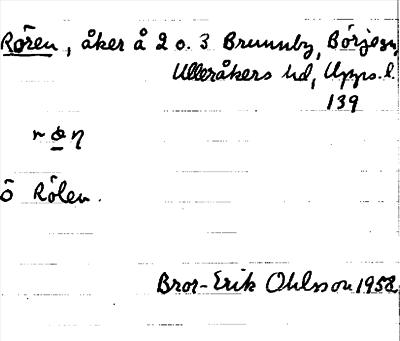 Rören, åker å 2 o. 3 Brunnby, Börje sn,
Ulleråkers hd, Upps. l.
139
Rölen.
Bror-Erik Ohlsson 1958